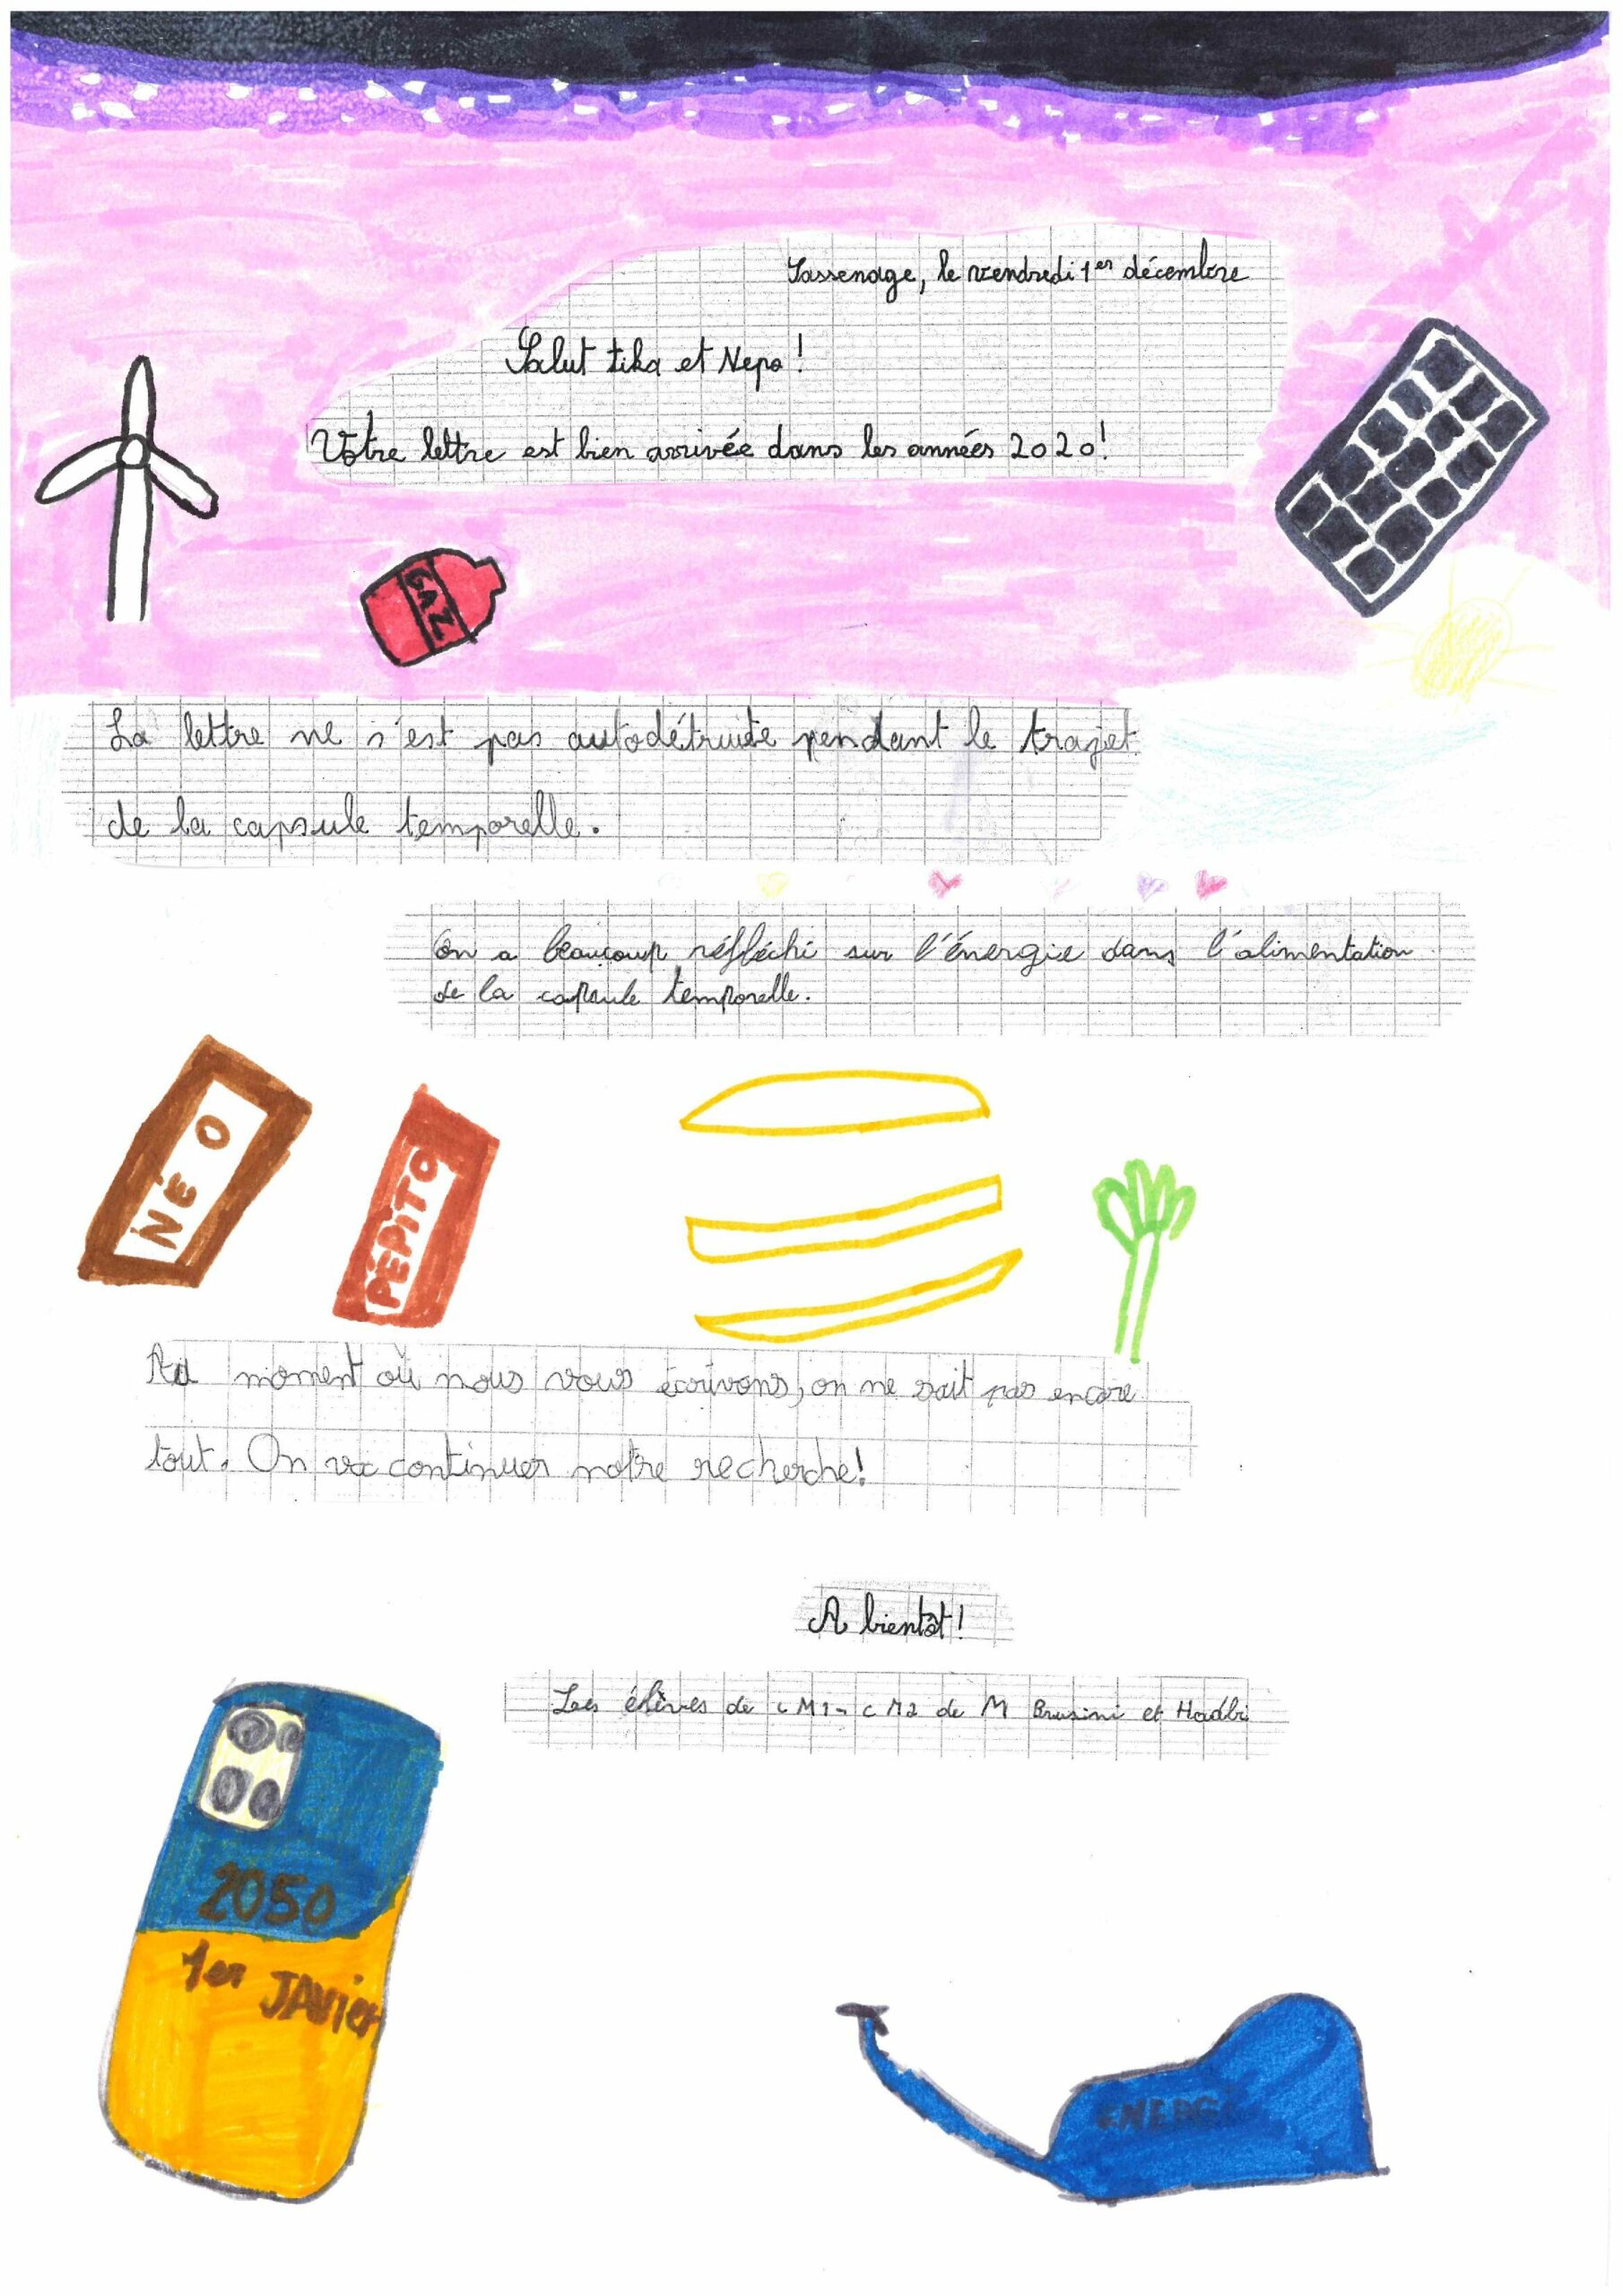 Sassenage, le vendredi 1er décembre
Salut tika et Nepo !
Votre lettre est bien arrivée dans les années 2020!
GAZ
La lettre ne s'est pas autodétruite pendant le trajet
de la capsule temporelle.
On a beaucoup réfléchi sur l'énergie dans l'alimentation
de la capsule temporelle.
NÉO
PÉPITO
Au moment où nous vous écrivons, on ne sait pas encore
tout. On va continuer notre recherche!
A bientôt!
Les élèves de CM1-CM2 de M Brusini et Hadbi
2050
1er JAVier